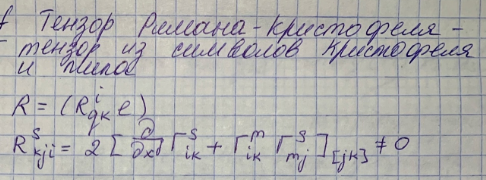 Тензор Римана-Кристофеля -
тензор из символов Кристофеля
и типа
R = (R^i_{qk} e)
R^s_{kji} = 2 [ ∂/∂x^j Γ^s_{ik} + Γ^m_{ik} Γ^s_{mj} ]_{[jk]} ≠ 0